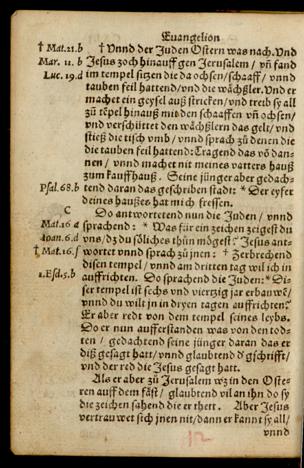 Euangelion
† Mat.21.b
Mar. 11. b
Luc. 19.d
† Vnnd der Juden Ostern was nach. Vnd
Jesus zoch hinauff gen Jerusalem / vñ fand
im tempel sitzen die da ochsen/schaaff/ vnnd
tauben feil hattend/vnd die wächßler. Vnd er
machet ein geysel auß stricken/vnd treib sy all
zů tẽpel hinauß mit den schaaffen vñ ochsen/
vnd verschüttet den wächßlern das gelt/ vnd
stieß die tisch vmb / vnnd sprach zů denen die
die tauben feil hattend: Tragend das võ dan-
nen / vnnd machet nit meines vatters hauß
zum kauffhauß. Seine jünger aber gedach-
Psal. 68.b
tend daran das geschriben stadt: * Der eyfer
deines haußes hat mich fressen.
C
Do antwortetend nun die Juden / vnnd
Mat.16.a
sprachend: * Was für ein zeichen zeigest du
Ioan.6.d
vns/dz du söliches thün mögest? Jesus ant-
† Mat.16.f
wortet vnnd sprach zů jnen: † Zerbrechend
disen tempel/ vnnd am dritten tag wil ich in
1.Esd.5.b
auffrichten. Do sprachend die Juden: * Di-
ser tempel ist sechs vnd vierzig jar erbauwẽ/
vnnd du wilt jn in dryen tagen auffrichten?
Er aber redt von dem tempel seines leybs.
Do er nun aufferstanden was von den tod-
ten / gedachtend seine jünger daran das er
diß gesagt hatt/ vnnd glaubtend d' gschrifft/
vnd der red die Jesus gesagt hatt.
Als er aber zů Jerusalem wz in den Oste-
ren auff dem fäst / glaubtend vil an jhn do sy
die zeichen sahend die er thett. Aber Jesus
vertrauwet sich jnen nit/ dann er kannt sy all/
vnnd
12